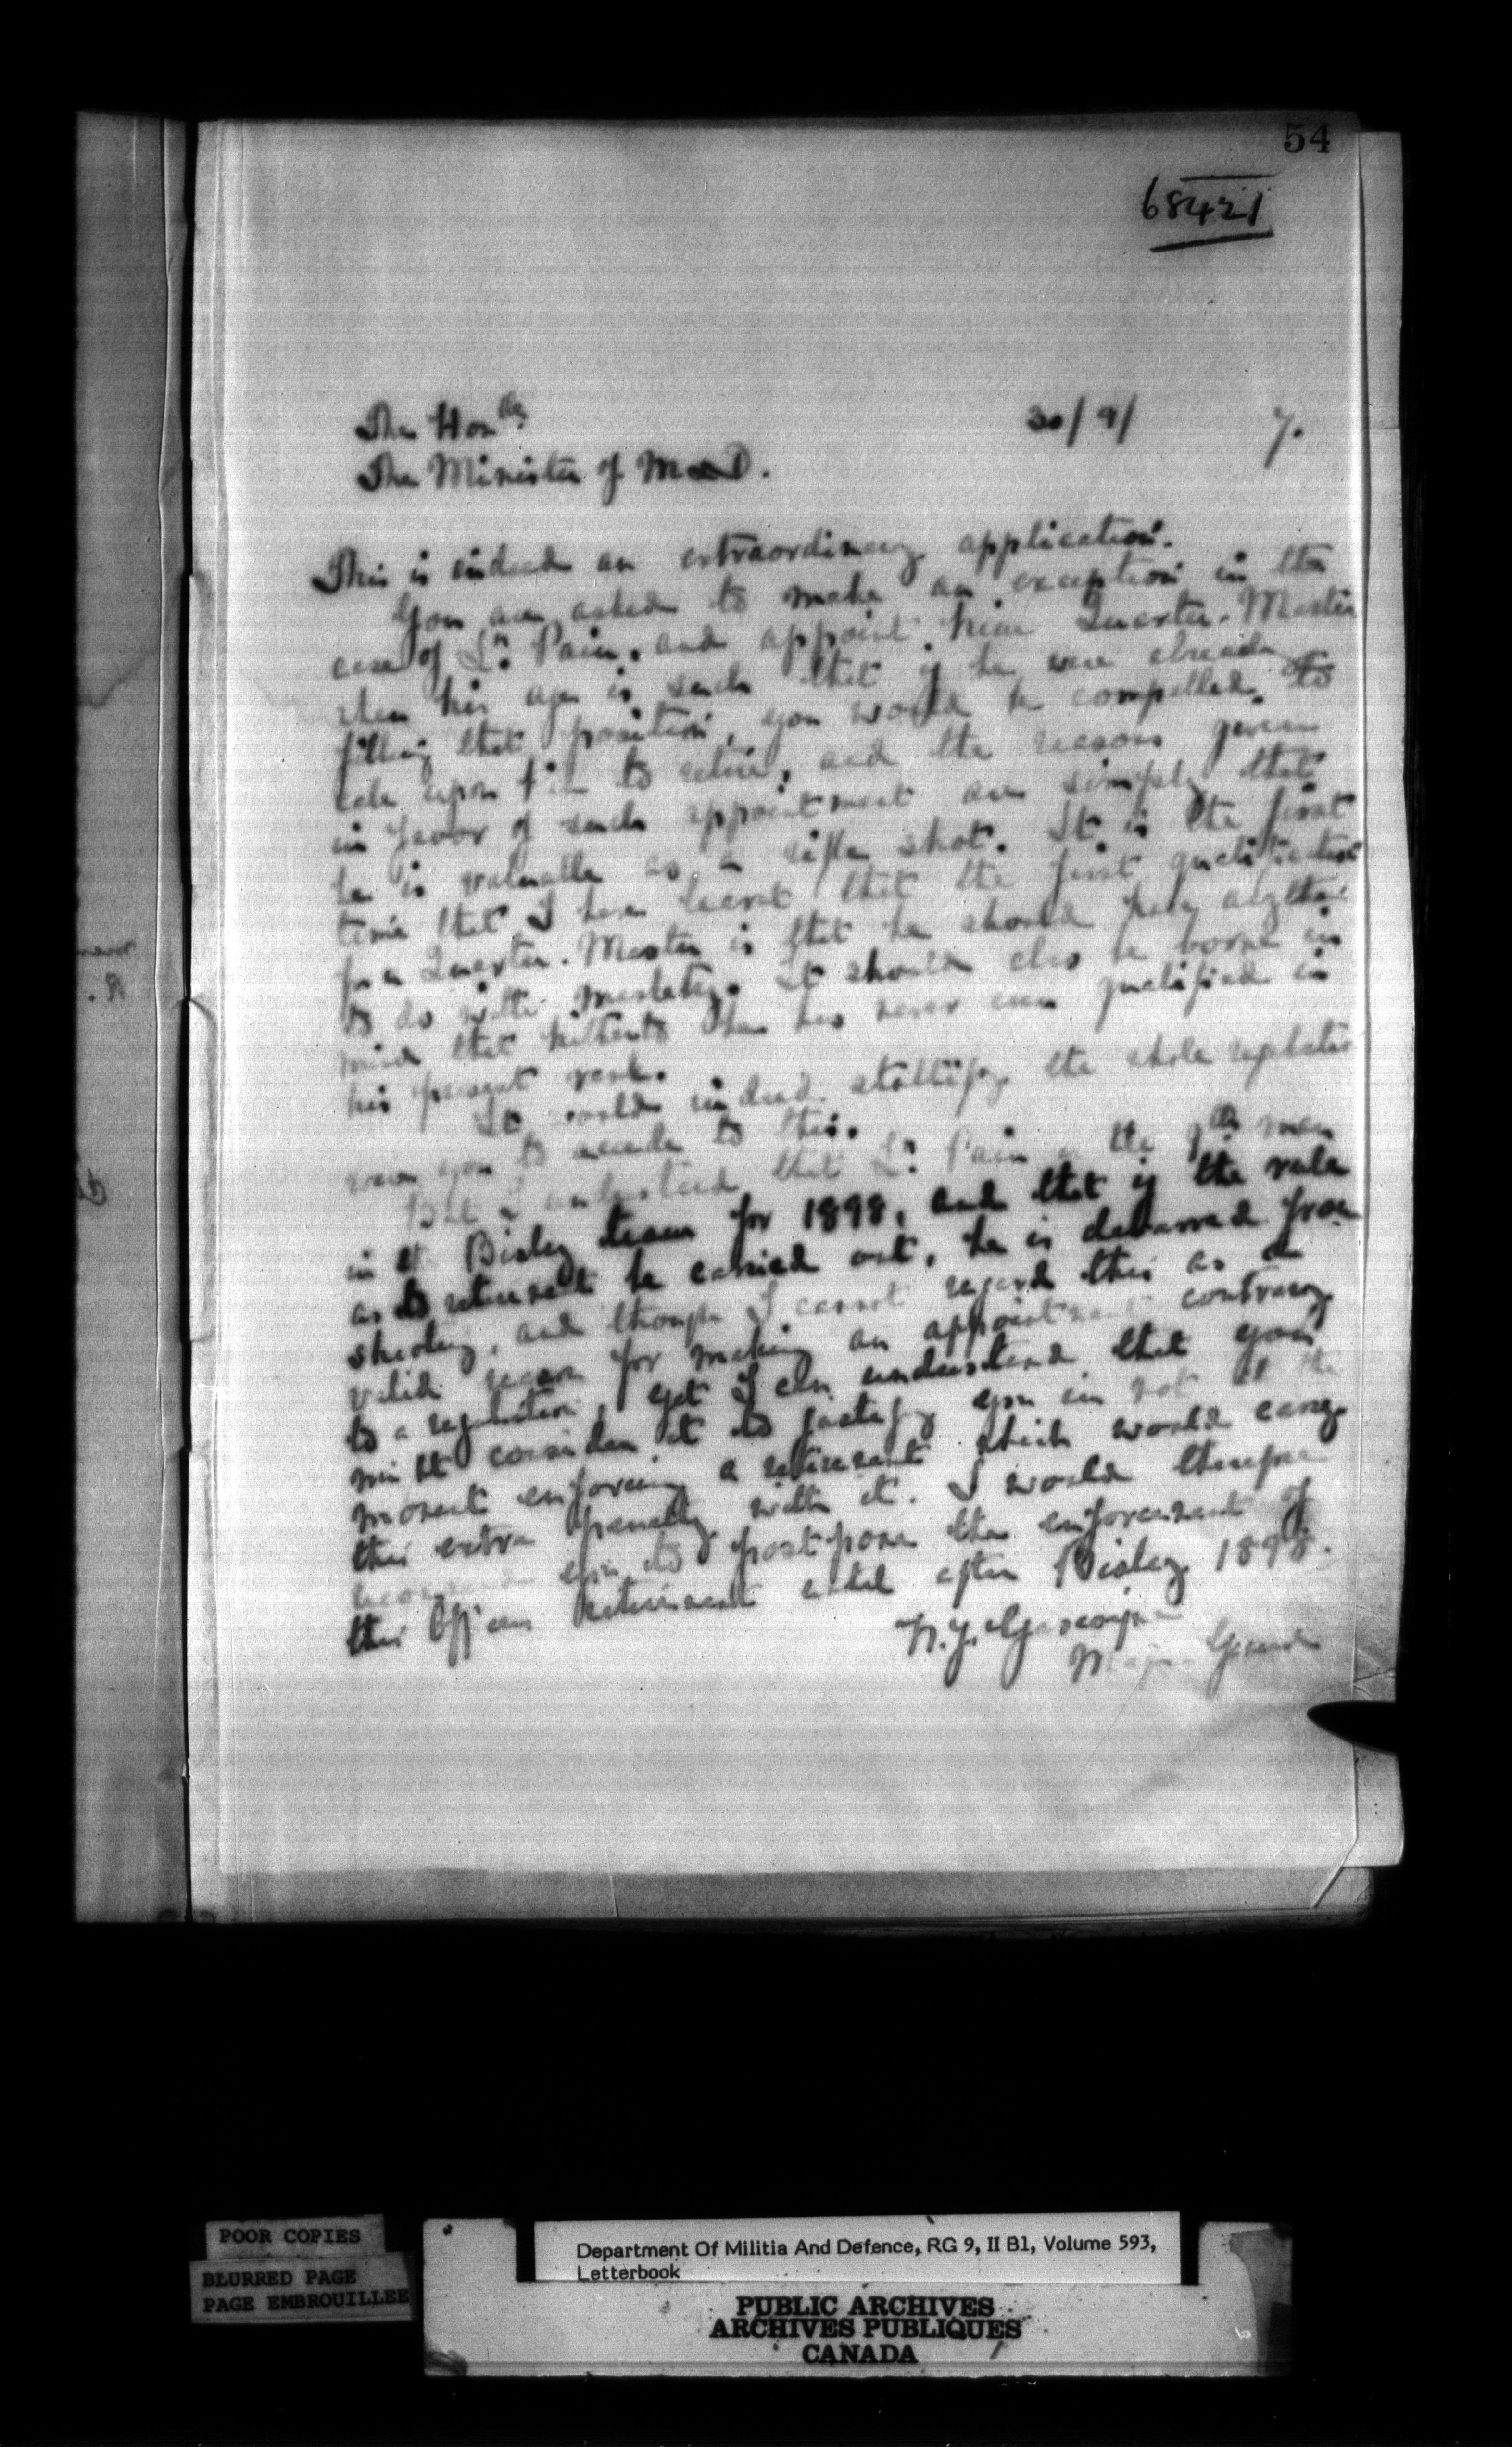 54
68421
The Honble 30/9/ 7.
The Minister of M & D.
This is indeed an extraordinary application.
You are asked to make an exception in the
case of Lt. Pain, and appoint him Quarter-Master
when his age is such that if he were already
filling that position, you would be compelled to
call upon him to retire, and the reasons given
in favor of such appointment are simply that
he is valuable as a rifle shot. It is the first
time that I have learnt that the first qualification
for a Quarter-Master is that he should have anything
to do with musketry. It should also be borne in
mind that hitherto he has never even qualified in
his present rank.
It would indeed stultify the whole regulation
were you to accede to this.
But I understand that Lt. Pain is the 9th man
in the Bisley team for 1898, and that if the rule
as to retirement be carried out, he is debarred from
shooting, and though I cannot regard this as a
valid reason for making an appointment contrary
to a regulation, yet I can understand that you
might consider it to justify you in not at the
moment enforcing a retirement which would carry
this extra penalty with it. I would therefore
recommend you to postpone the enforcement of
this Officers retirement until after Bisley 1898.
W. J. Gascoigne
Major General
POOR COPIES
BLURRED PAGE
PAGE EMBROUILLEE
Department Of Militia And Defence, RG 9, II B1, Volume 593,
Letterbook
PUBLIC ARCHIVES
ARCHIVES PUBLIQUES
CANADA